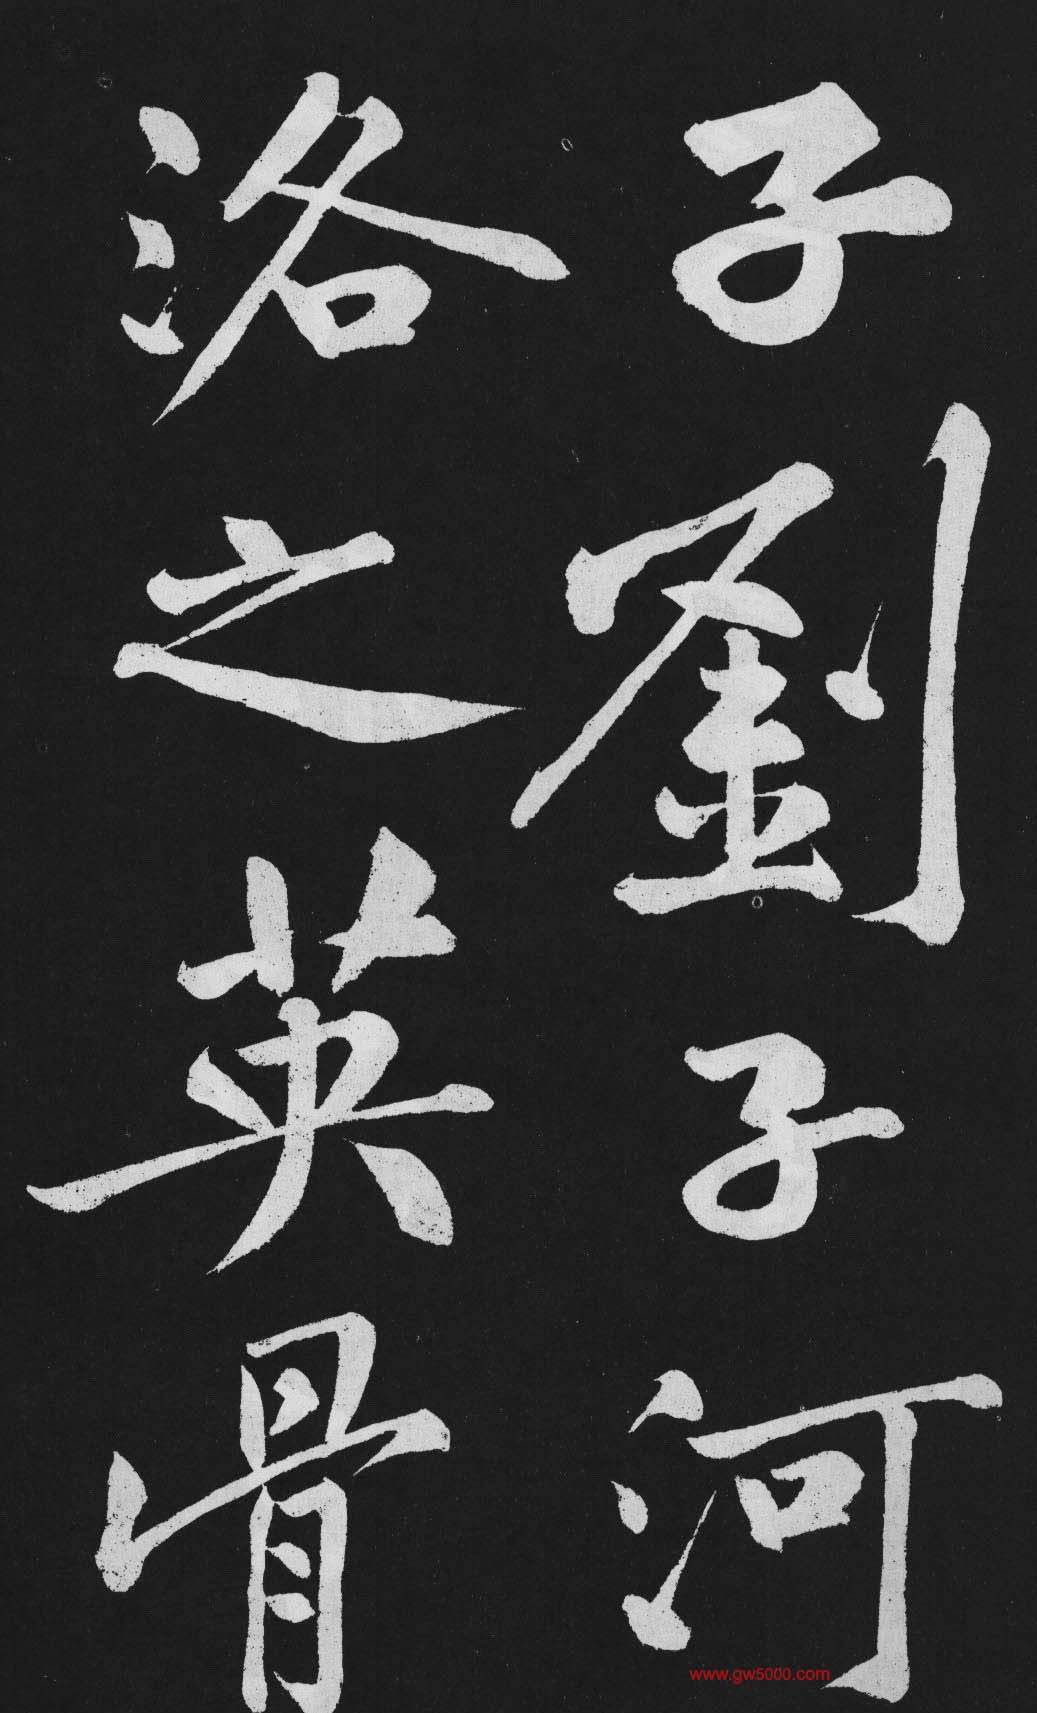 子劉子河
洛之英骨
www.gw5000.com